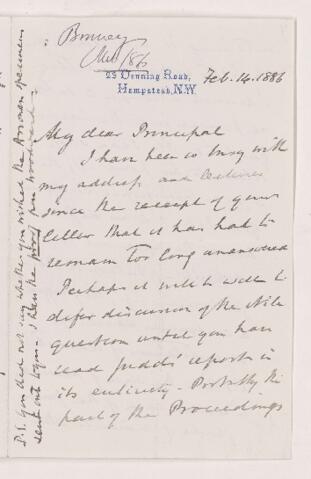 Bonney
Feb/86
23 Denning Road,
Hampstead, N.W.
Feb. 14. 1886
My dear Principal
I have been so busy with
my address and lectures
since the receipt of your
letter that it has had to
remain too long unanswered
Perhaps it will be well to
defer discussion of the Nile
question until you have
read Judd's reports in
its entirety - Probably the
part of the Proceedings
P.S. You did not say whether you wished the Assouan specimens
sent out to you - I have the proof